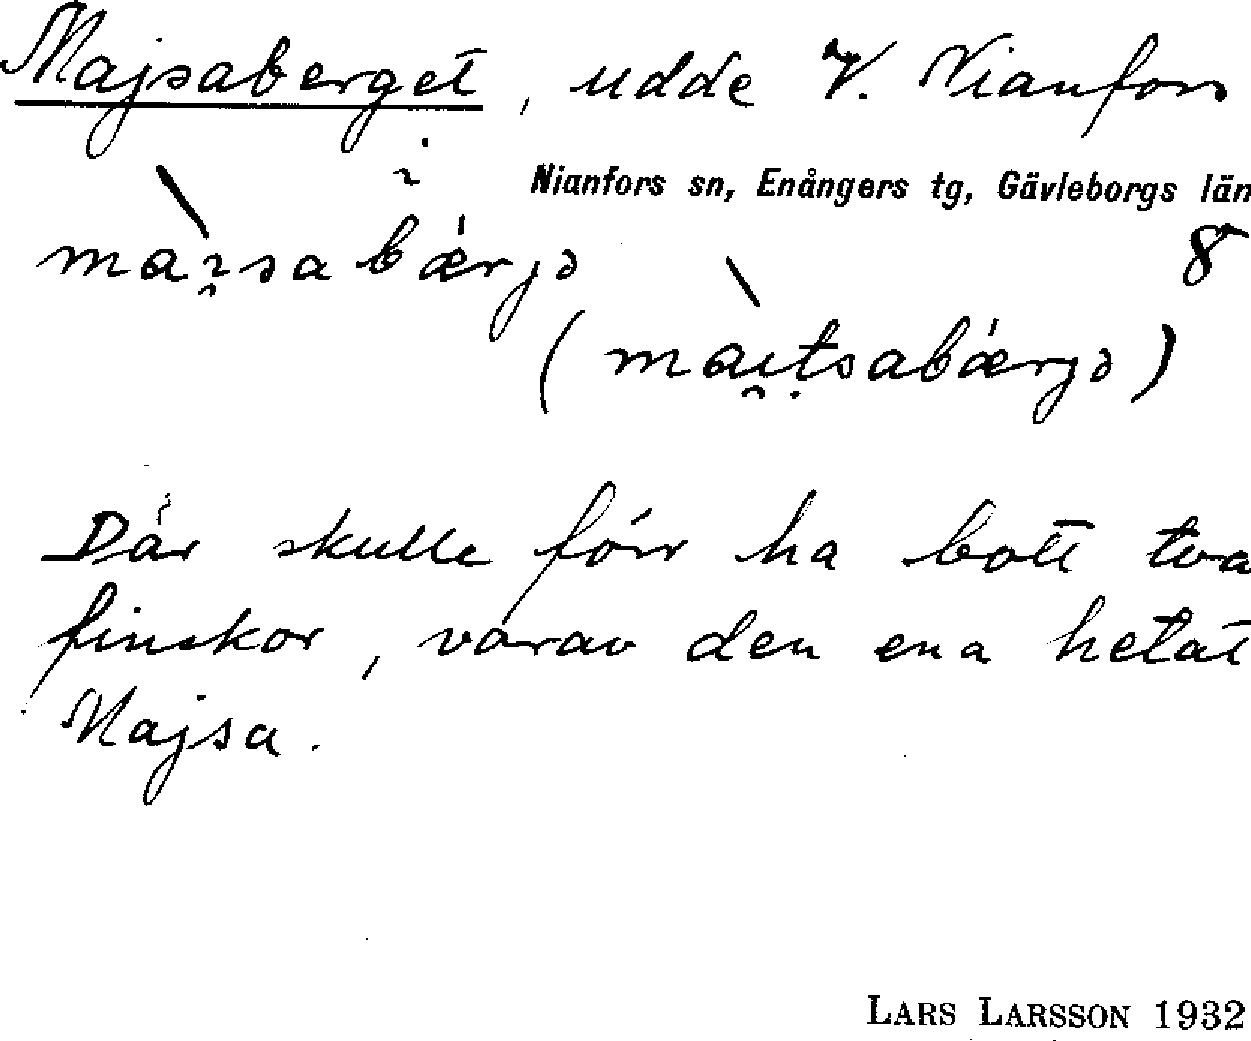 Majsaberget, udde V. Nianfors
Nianfors sn, Enångers tg, Gävleborgs län
8
Där skulle förr ha bott två
finskor, varav den ena hetat
Majsa.
LARS LARSSON 1932